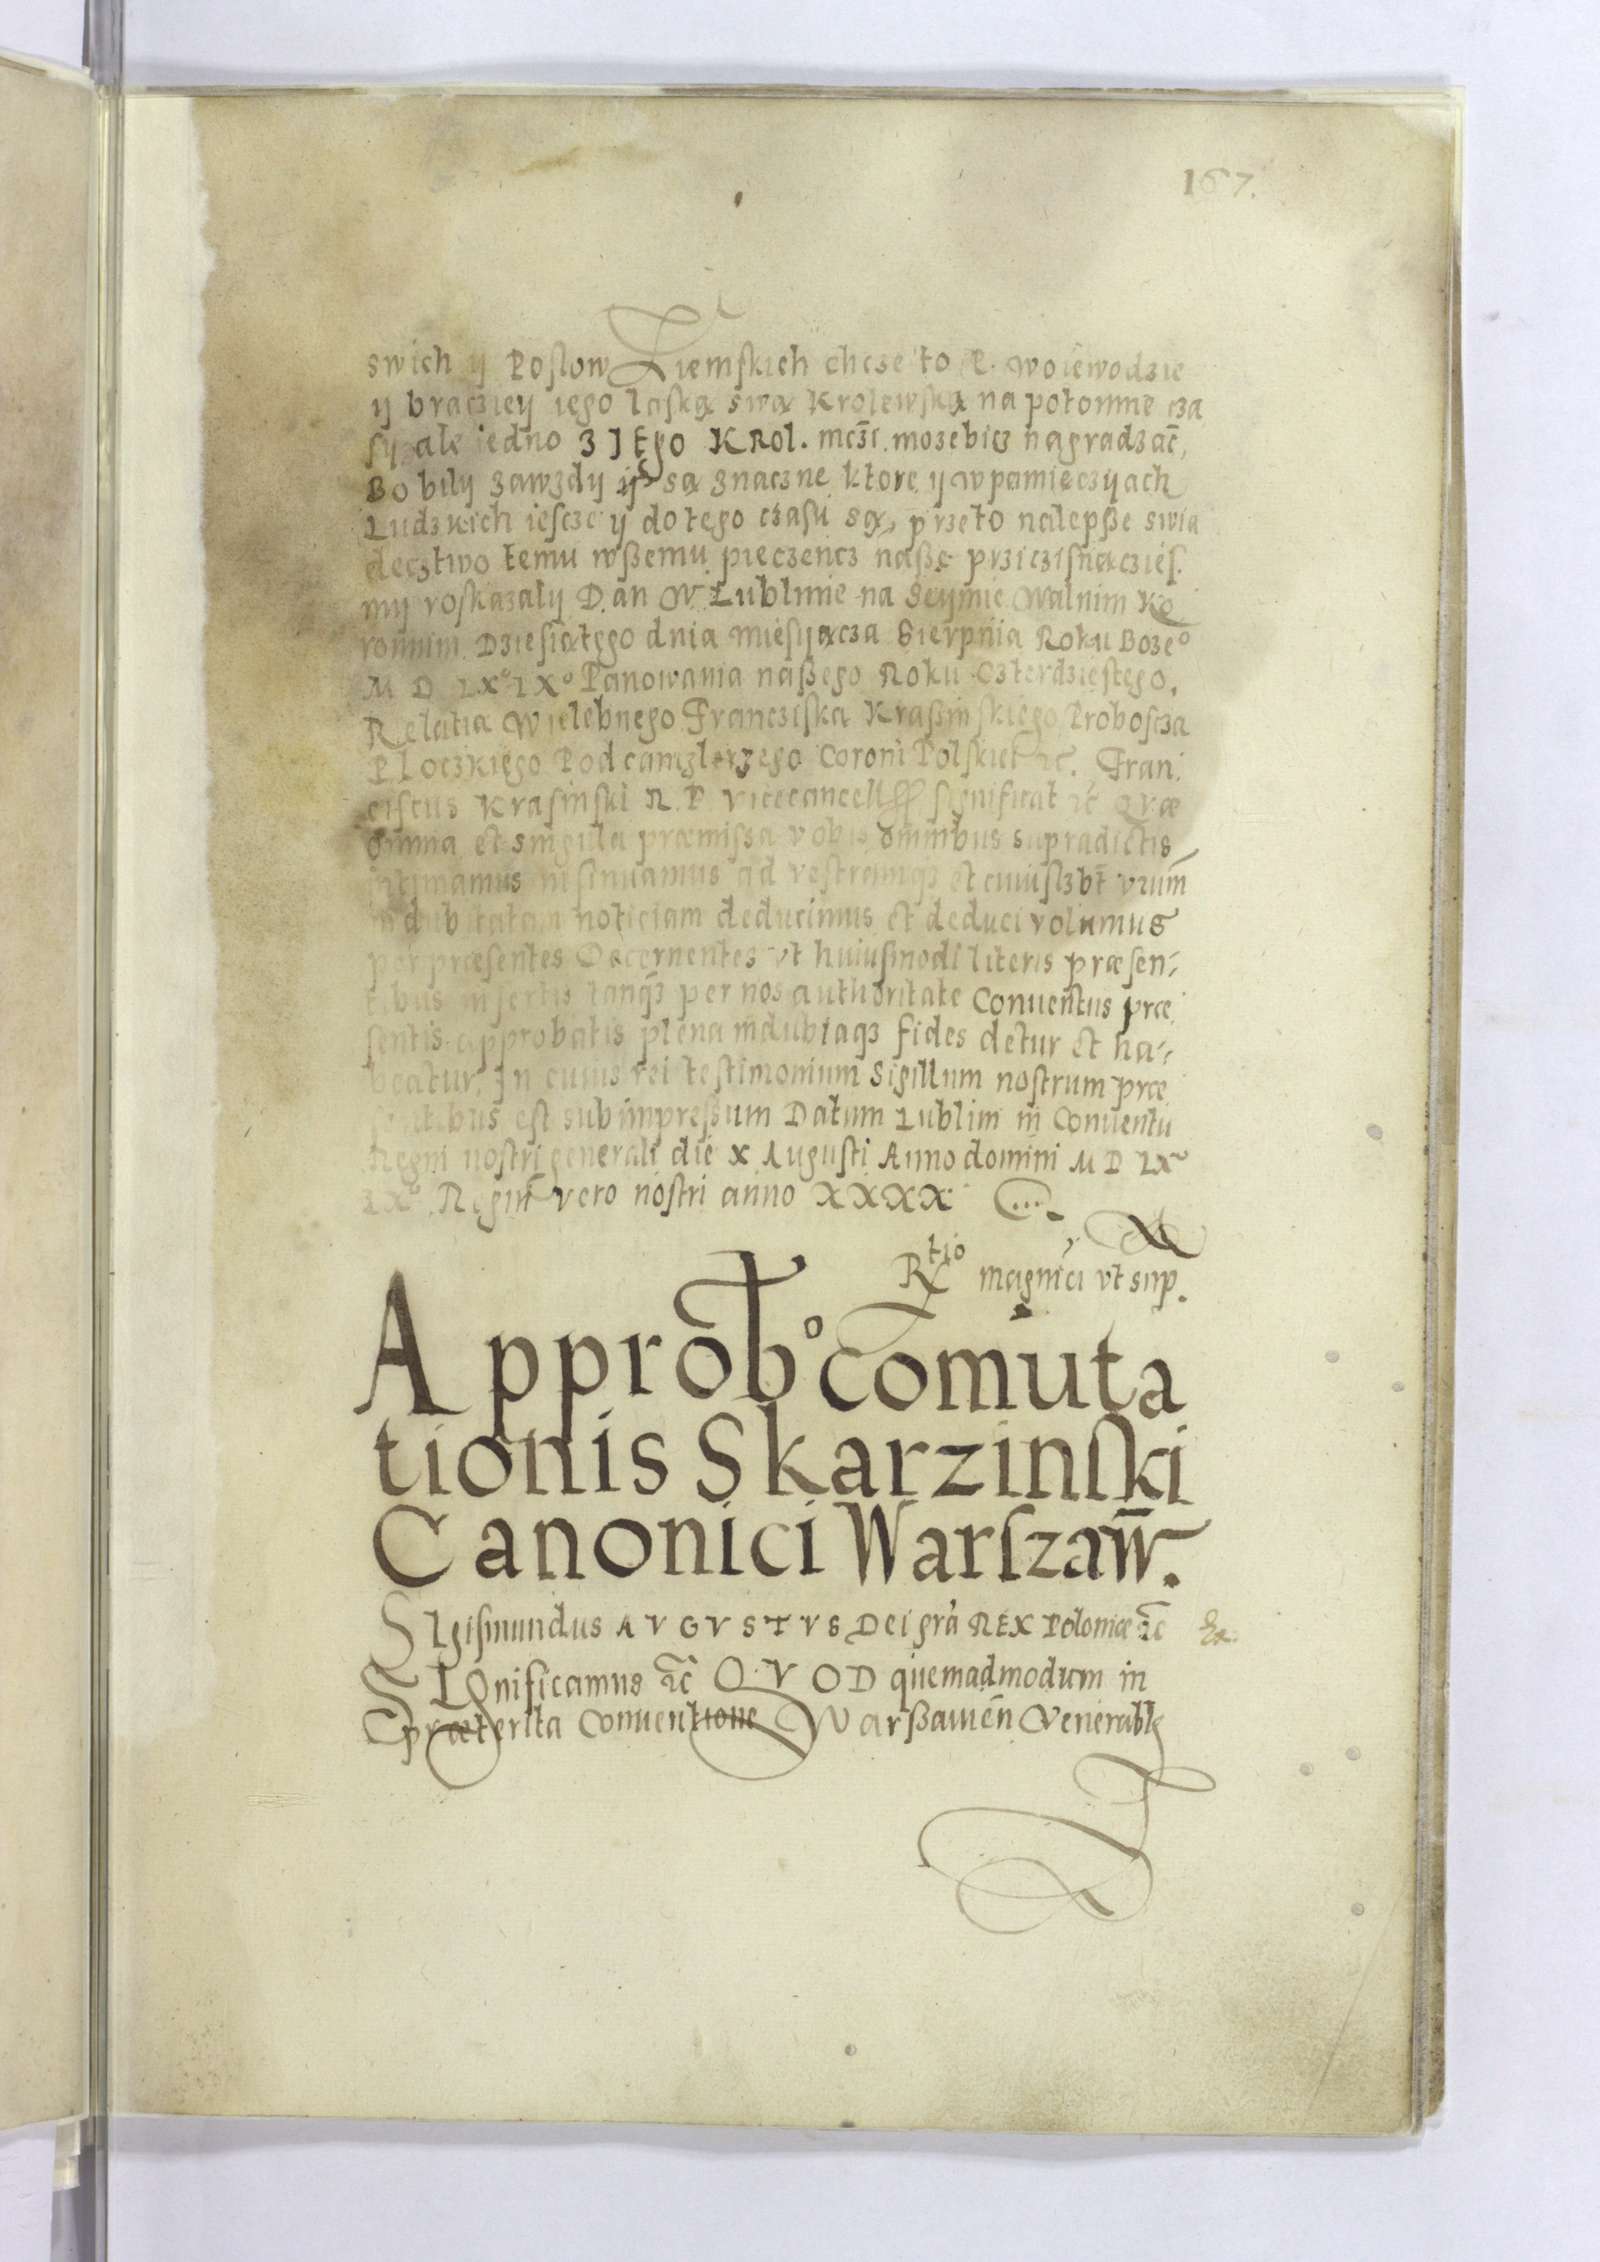 167.
swich ÿ Posłow Ziemskich chcze to P. woiewodzie
ÿ bracziey iego laską swą Krolewską na potomne cza
sÿ ale iedno z JEgo KRol. mczi. mozebicz nagradzac,
Bo bilÿ zawzdÿ ÿ są znaczne ktore ÿ w pamieczÿach
Ludzkich iescze ÿ do tego czasu są, przeto nalepsze swia
decztwo temu wszemu pieczencz naszę prziczisnączies.
mÿ roskazalÿ Dan W Lublinie na Seÿmie Walnim Ko
ronnim Dziesiątego dnia miesÿącza Sierpnia Roku Bozeº
M D LXº LXº Panowania naszego Roku Czterdziestego.
Relatia Wielebnego Francziska Kraszinskiego Proboscza
Ploczkiego Podcanzlerzego Coroni Polskiei ꝛc. Fran
ciscus Krasinski R. P. Vicecancell significat ꝛc Quæ
omnia et singula præmissa vobis omnibus supradictis
intimamus insinuamus ad vestramqꝫ et cuiuslꝫbt vrum̄
indubitatam noticiam deducimus et deduci volumus
per præsentes Decernentes vt huiusmodi literis præsen-
tibus insertis tanqꝫ per nos authoritate Conuentus præ
sentis approbatis plena indubiaqꝫ fides detur et ha-
beatur. In cuius rei testimonium Sigillum nostrum præ
sentibus est subimpressum Datum Lublini in Conuentu
Regni nostri generali die X Augusti Anno domini M D LXº
LXº. Regni vero nostri anno XXXX
Rtio magnici vt sup.
Approbº com̄uta
tionis Skarzinski
Canonici Warszaw̄.
SIgismundus AVGVSTVS Dei gra REX Poloniæ ꝛc
SIGnificamus ꝛc QVOD quemadmodum in
præterita Conuentione Warszauien̄ Venerabil